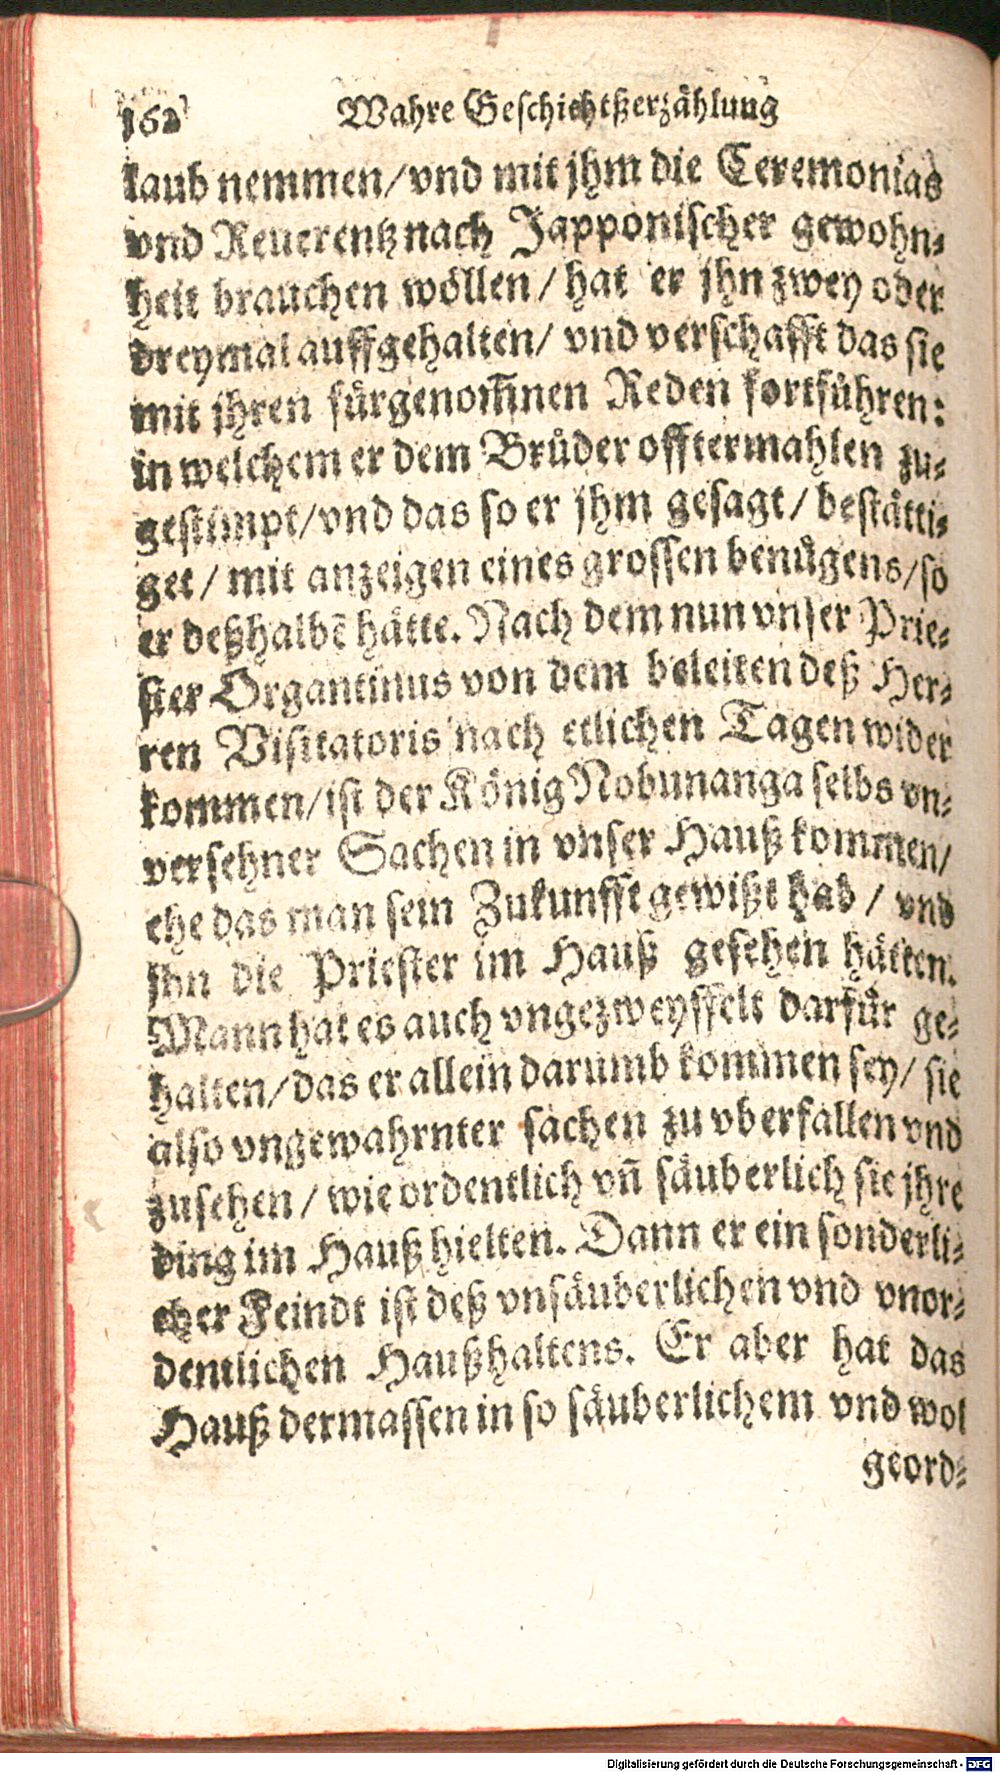 162 Wahre Geschichtßerzählung
laub nemmen/vnd mit jhm die Ceremonias
vnd Reuerentz nach Japponischer gewohn⸗
heit brauchen wöllen/ hat er jhn zwey oder
dreymal auffgehalten/ vnd verschafft das sie
mit jhren fürgenom̃nen Reden fortführen:
in welchem er dem Brůder offtermahlen zu⸗
gestimpt/vnd das so er jhm gesagt/ bestätti⸗
get/ mit anzeigen eines grossen benůgens/so
er deßhalbẽ hätte. Nach dem nun vnser Prie⸗
ster Organtinus von dem beleiten deß Her⸗
ren Visitatoris nach etlichen Tagen wider
kommen/ist der König Nobunanga selbs vn⸗
versehner Sachen in vnser Hauß kommen/
ehe das man sein Zukunfft gewißt hab/ vnd
jhn die Priester im Hauß gesehen hätten.
Mann hat es auch vngezweyffelt darfür ge⸗
halten/das er allein darumb kommen sey/ sie
also vngewahrnter sachen zu vberfallen vnd
zusehen/ wie ordentlich vñ säuberlich sie jhre
ding im Hauß hielten. Dann er ein sonderli⸗
cher Feindt ist deß vnsäuberlichen vnd vnor⸗
dentlichen Haußhaltens. Er aber hat das
Hauß dermassen in so säuberlichem vnd wol
geord⸗
Digitalisierung gefördert durch die Deutsche Forschungsgemeinschaft - DFG